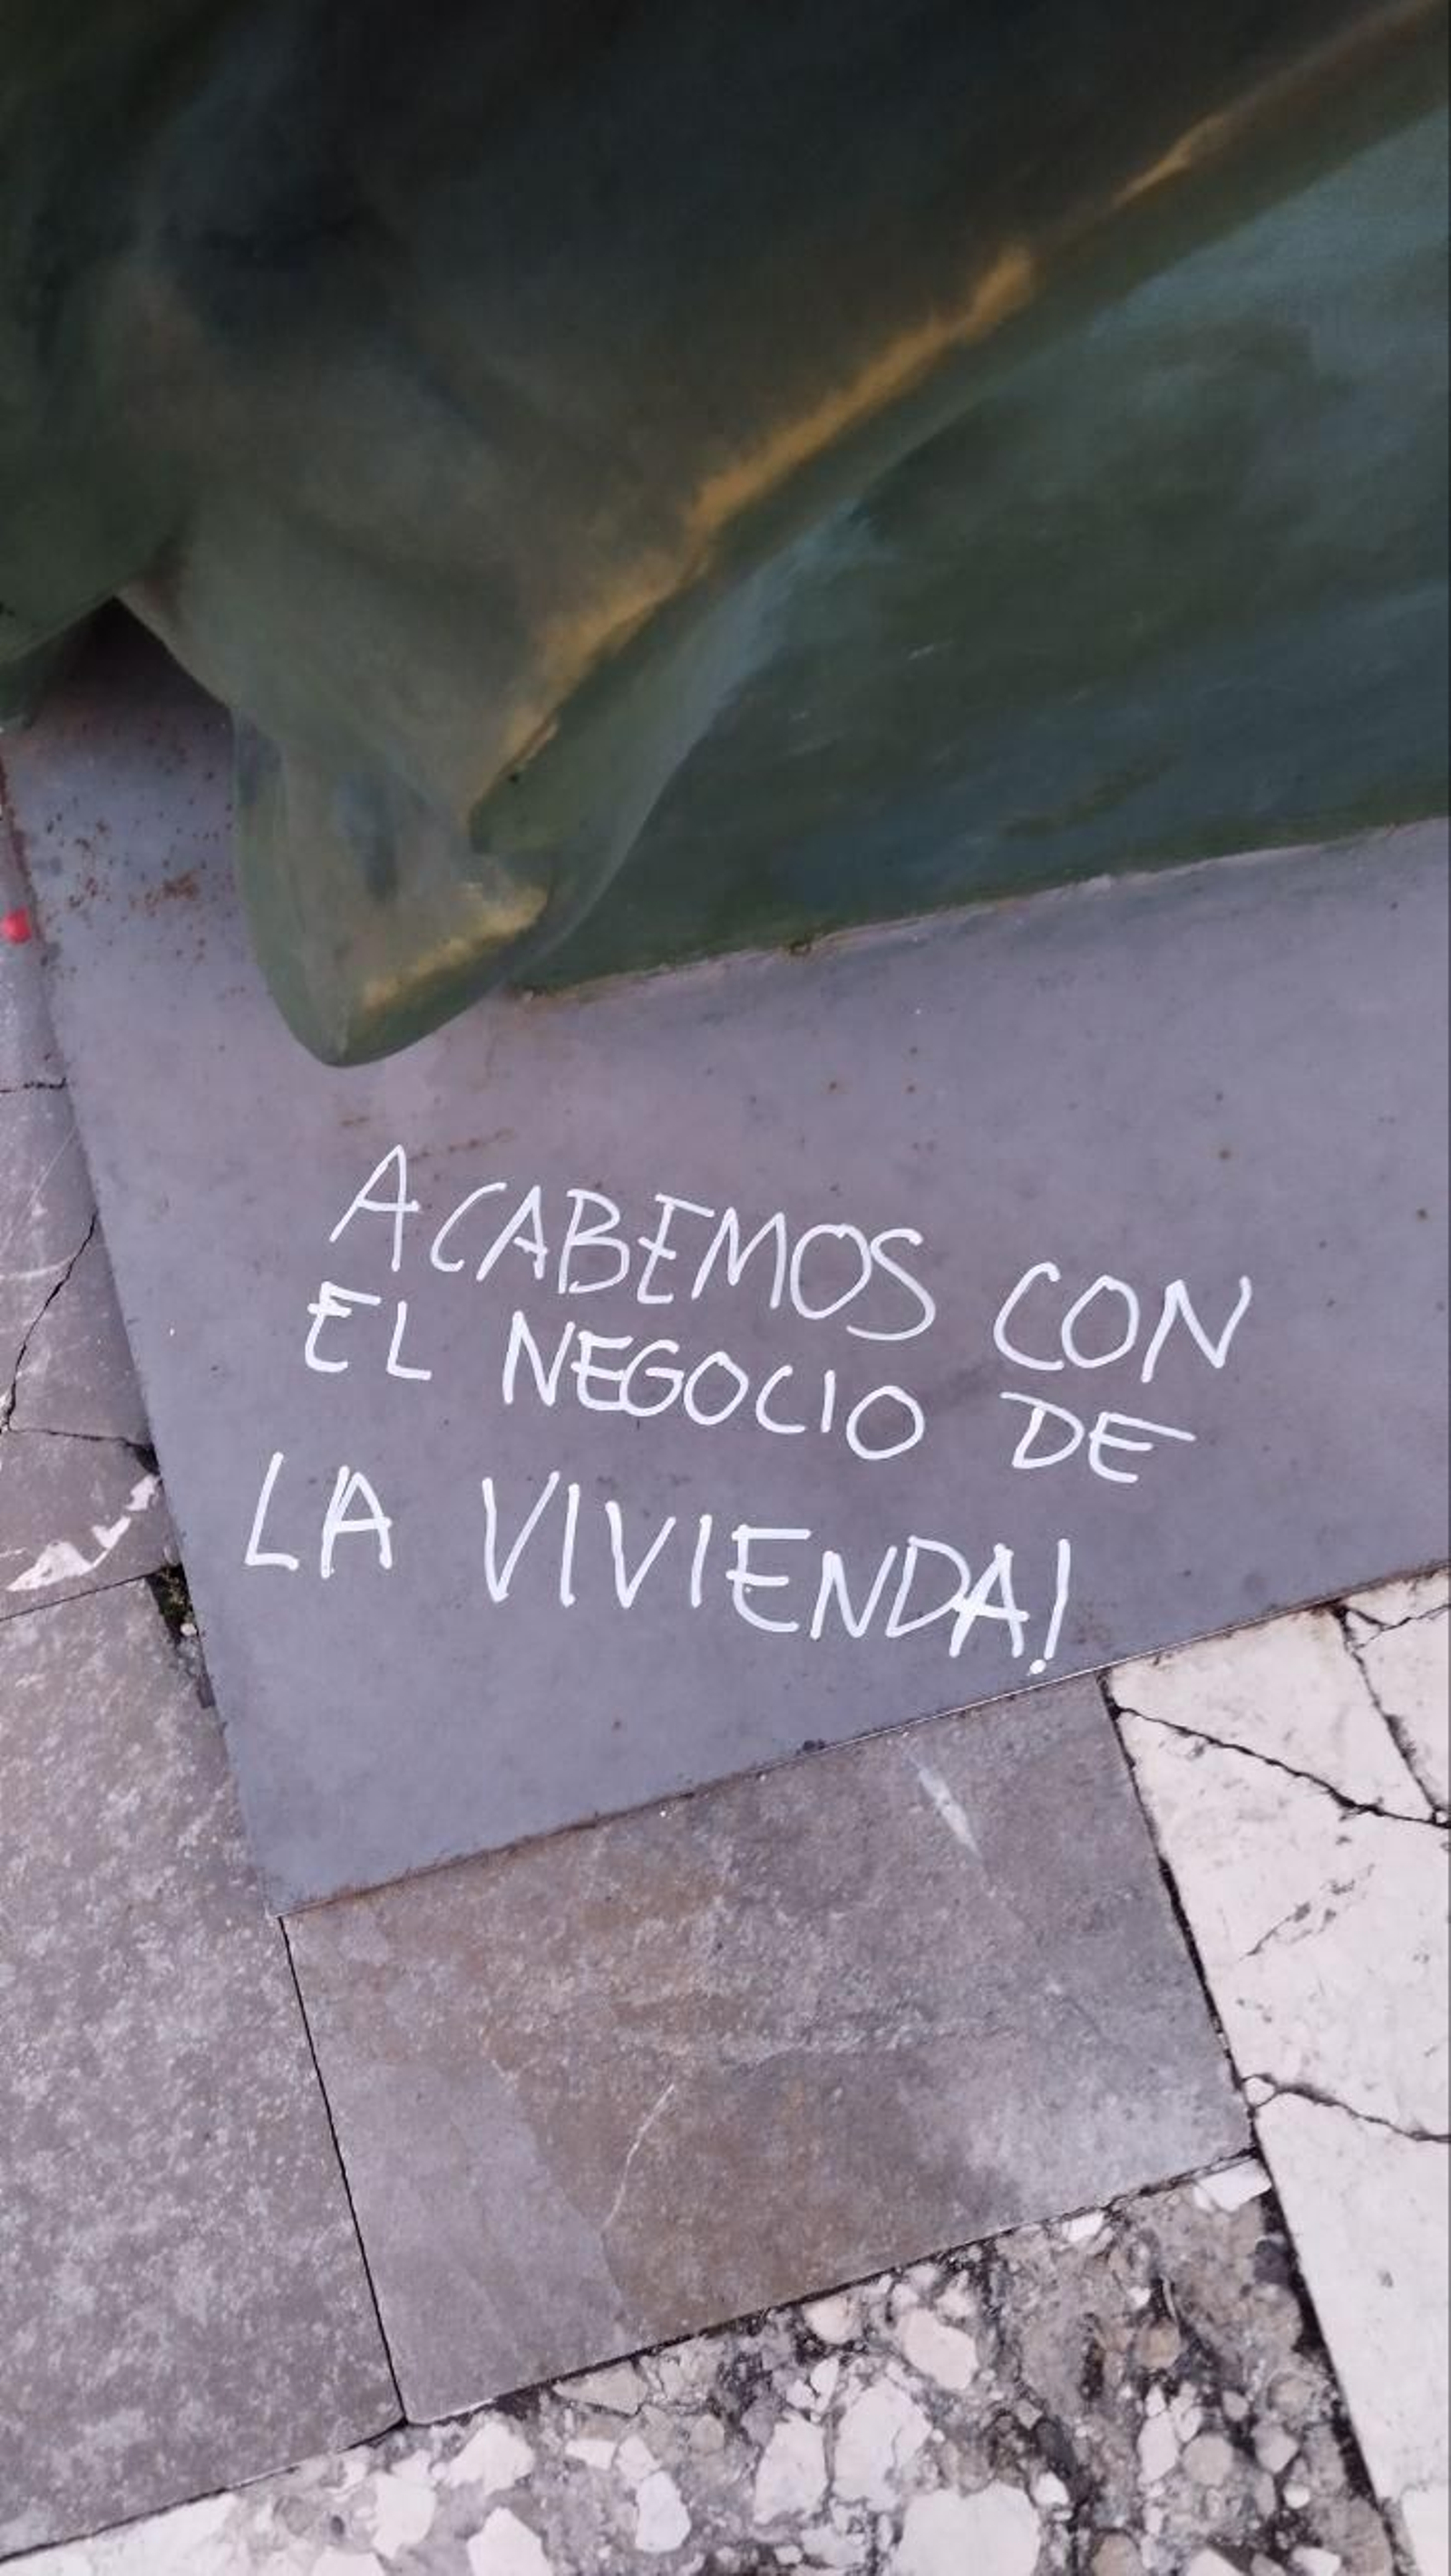 ACABEMOS CON
EL NEGOCIO DE
LA VIVIENDA!